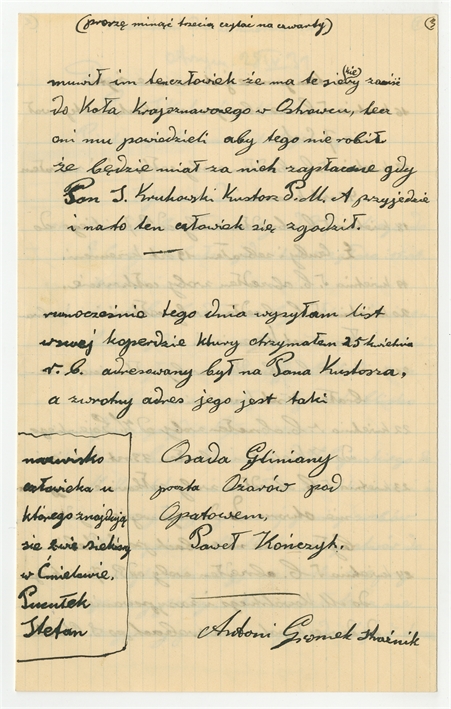 (proszę minąć trzecią czytać na czwarty)
3
muwił im ten człowiek że ma te siekiery zanieść
do Koła Krajoznawczego w Ostrowcu, lecz
oni mu powiedzieli aby tego nie robił
że będzie miał za nich zapłacone gdy
Pan S. Krukowski Kustosz P.M.A przyjedzie
i na to ten człowiek się zgodził.
rownocześnie tego dnia wysyłam list
w swej koperdzie ktury otrzymałem 25 kwietnia
r. b. adresowany był na Pana Kustosza,
a zwrotny adres jego jest taki
Osada Gliniany
poczta Ożarów pod
Opatowem,
Paweł Kończyk.
nazwisko
człowieka u
którego znajdują
sie dwie siekiery
w Ćmielowie,
Pucułek
Stefan
Antoni Gromek strażnik